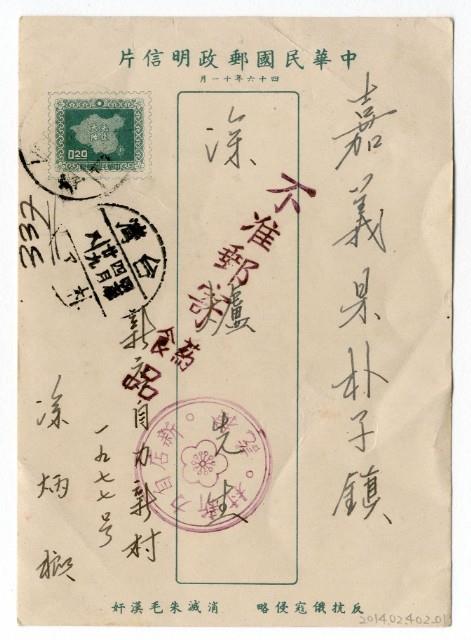 中華民國郵政明信片
四十六年十一月
嘉義县朴子鎮
涂 爐 先生
不准郵寄
药食品
0.20
台灣
332
新店自力新村
一九七七号
涂炳
反抗俄寇侵略 消滅朱毛漢奸
2014.024.02.01